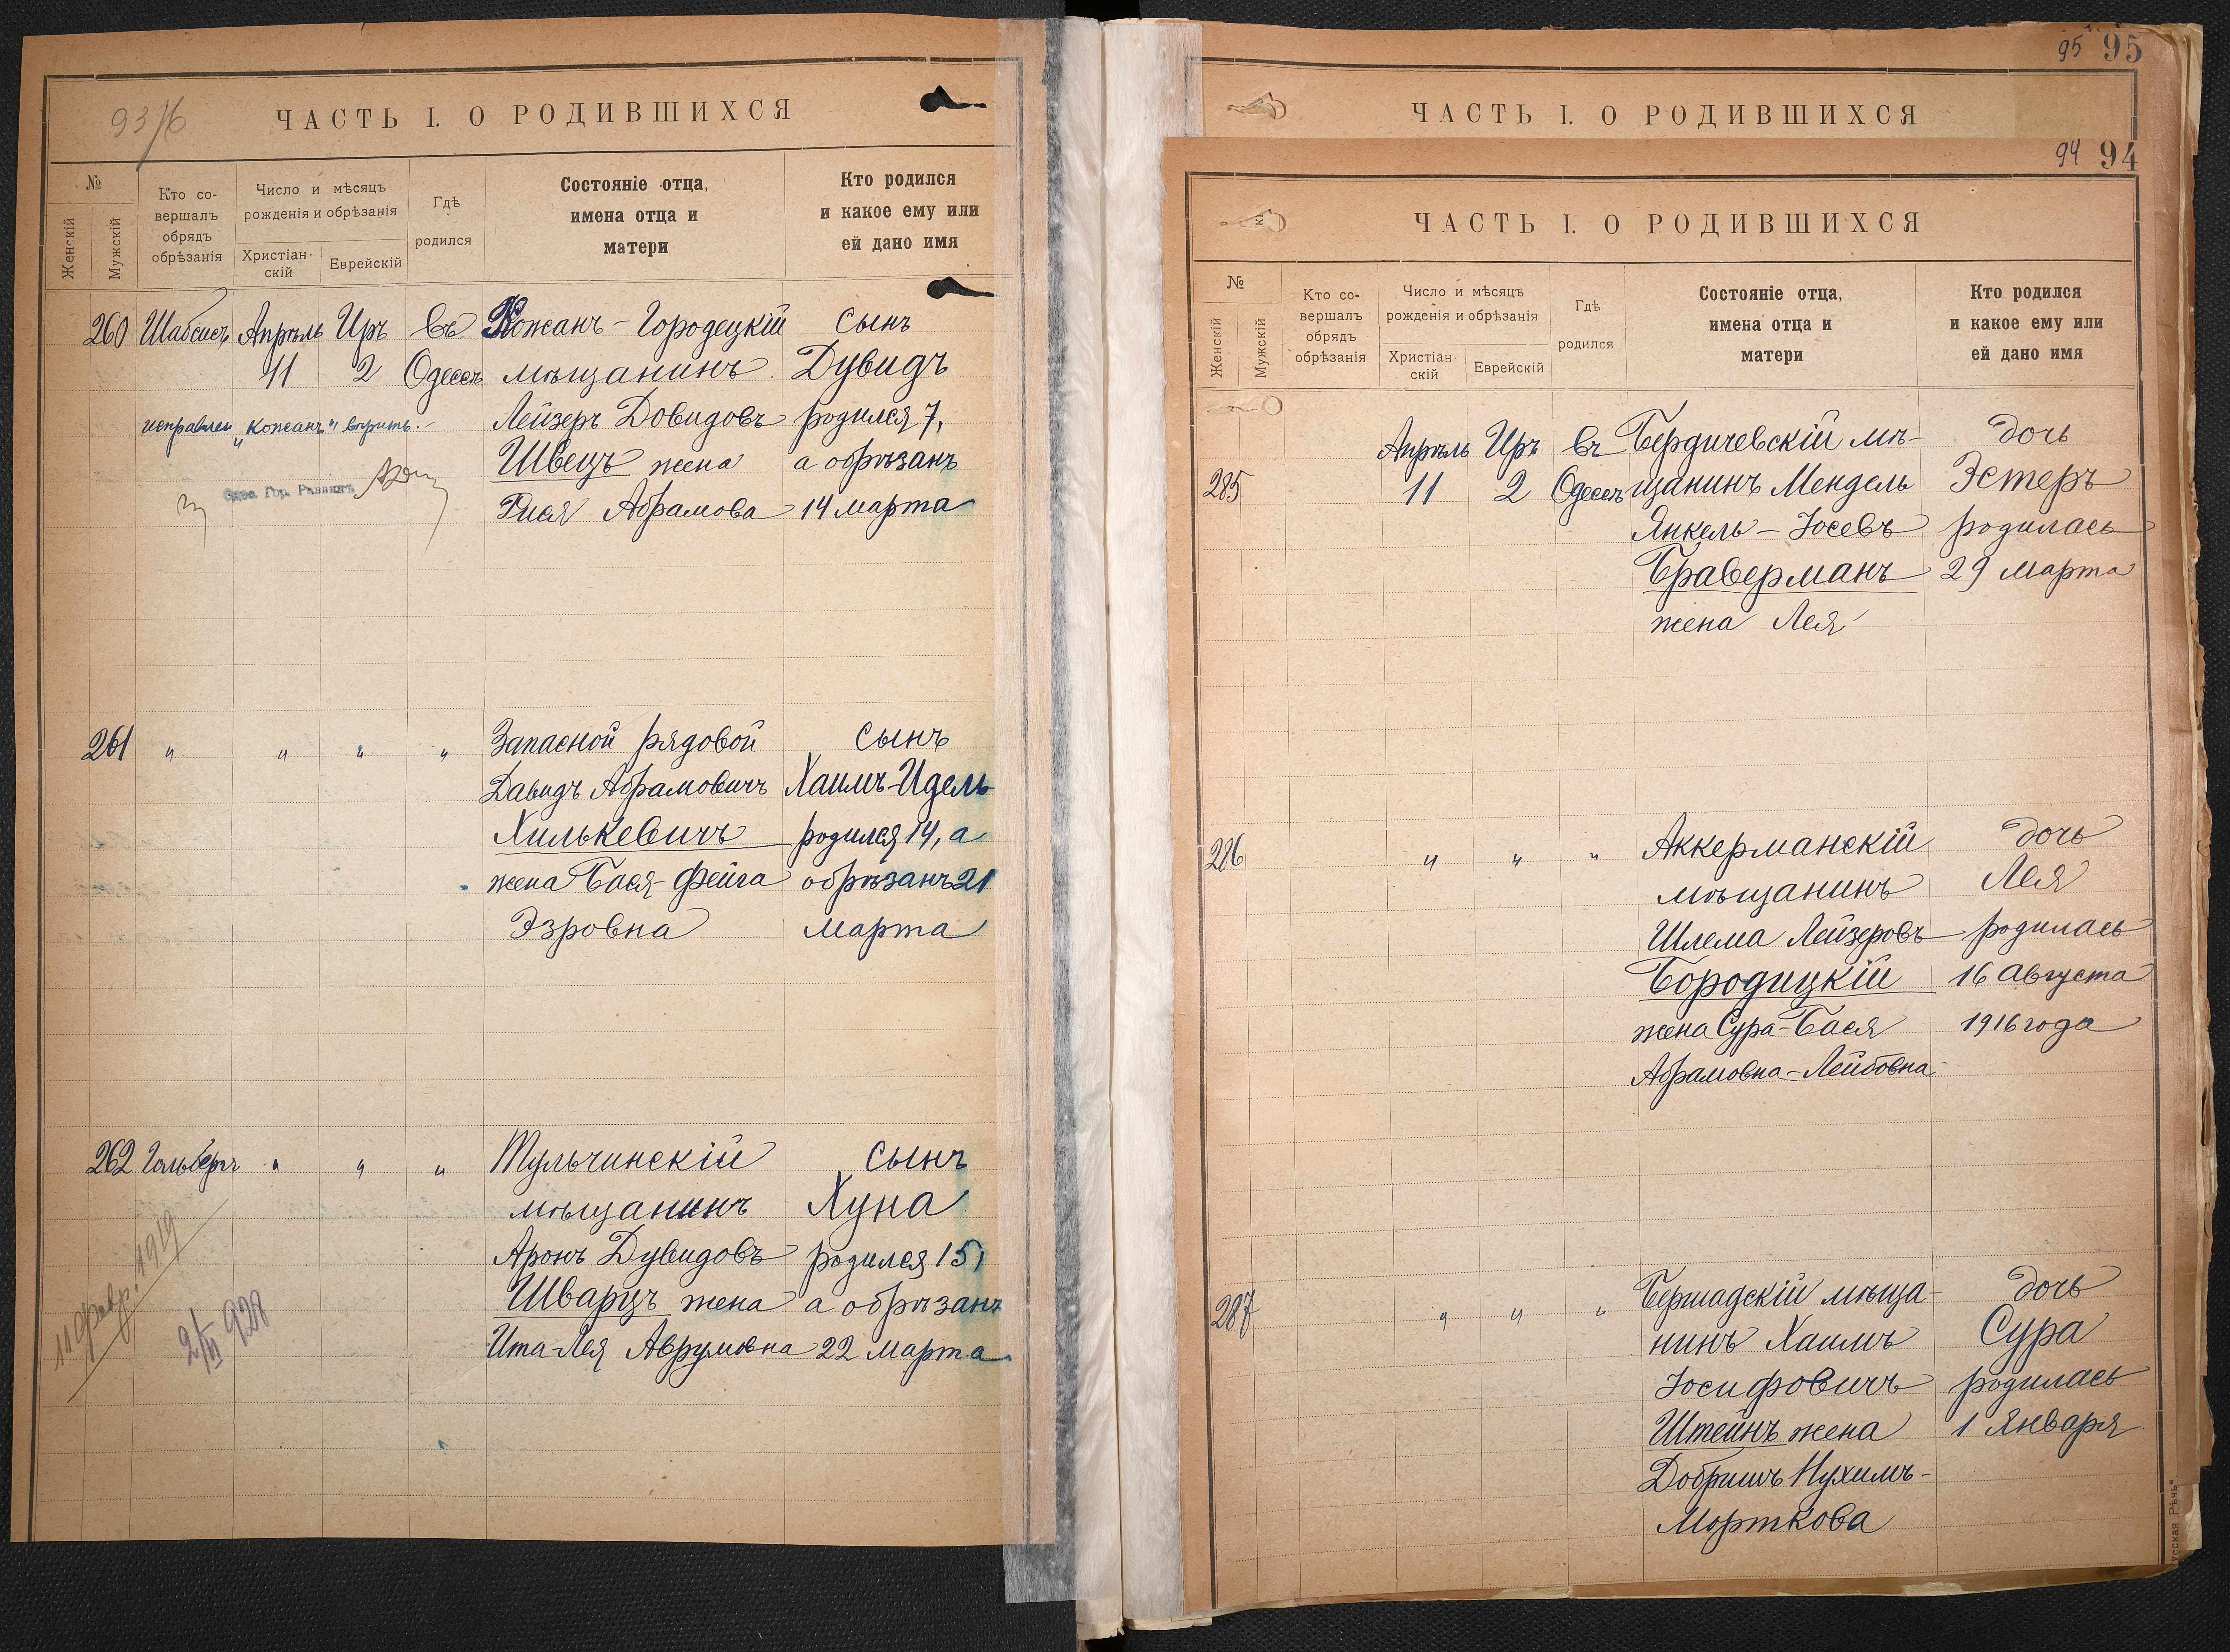 93/6
ЧАСТЬ I. О РОДИВШИХСЯ
№
Женскій
Мужскій
Кто со-
вершалъ
обрядъ
обрѣзанія
Число и мѣсяцъ
рожденія и обрѣзанія
Христіан-
скій
Еврейскій
Гдѣ
родился
Состояніе отца,
имена отца и
матери
Кто родился
и какое ему или
ей дано имя
260 Шабсисъ Апрѣль Иръ въ Кожанъ-Городецкій сынъ
11 2 Одессѣ мѣщанинъ Дувидъ
исправлен „Кожанъ" вѣрить.
Лейзеръ Довидовъ родился 7,
Швецъ жена а обрѣзанъ
Одес. Гор. Раввинъ
Рися Абрамова 14 марта
261 " " " " Запасной рядовой сынъ
Давидъ Абрамовичъ Хаимъ-Идель
Хилькевичъ родился 14, а
жена Бася-Фейга обрѣзанъ 21
Эзровна марта
262 Гольбергъ " " " Тульчинскій сынъ
мѣщанинъ Хуна
Аронъ Дувидовъ родился 15,
Шварцъ жена а обрѣзанъ
Ита-Лея Аврумовна 22 марта
11 февр. 1919
2/VI 928
95 95
ЧАСТЬ I. О РОДИВШИХСЯ
94 94
ЧАСТЬ I. О РОДИВШИХСЯ
№
Женскій
Мужскій
Кто со-
вершалъ
обрядъ
обрѣзанія
Число и мѣсяцъ
рожденія и обрѣзанія
Христіан-
скій
Еврейскій
Гдѣ
родился
Состояніе отца,
имена отца и
матери
Кто родился
и какое ему или
ей дано имя
Апрѣль Иръ въ Бердичевскій мѣ- дочь
285 11 2 Одессѣ щанинъ Мендель Эстеръ
Янкель-Іосевъ родилась
Браверманъ 29 марта
жена Лея
286 " " " Аккерманскій дочь
мѣщанинъ Лея
Шлема Лейзеровъ родилась
Бородицкій 16 Августа
жена Сура-Бася 1916 года
Абрамовна-Лейбовна
287 " " " Бершадскій мѣща- дочь
нинъ Хаимъ Сура
Іосифовичъ родилась
Штейнъ жена 1 Января
Добришъ Нухимъ-
Морткова
усская Рѣчь"